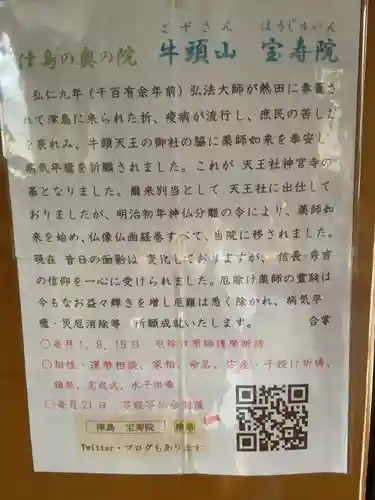 ごずさん ほうじゅいん
津島の奥の院 牛頭山 宝寿院
弘仁九年(千百有余年前)弘法大師が熱田に参籠さ
れて津島に来られた折、疫病が流行し、庶民の苦しみ
を哀れみ、牛頭天王の御社の脇に薬師如来を奉安し
病気平癒を祈願されました。これが 天王社神宮寺の
基となりました。爾来別当として 天王社に出仕して
おりましたが、明治初年神仏分離の令により、薬師如
来を始め、仏像仏画経巻すべて、当院に移されました。
現在 昔日の面影は 変化しておりますが、信長 秀吉
の信仰を一心に受けられました。厄除け薬師の霊験は
今もなお益々輝きを増し厄難は悉く除かれ、病気平
癒・災厄消除等 所願成就いたします。 合掌
○毎月1、8、18日 厄除け薬師護摩祈祷
○相性・運勢相談、家相、命名、安産・子授け祈祷、
鎮祭、完成式、水子供養
○毎月21日 写経写仏会開催
津島 宝寿院 検索
Twitter・ブログもあります